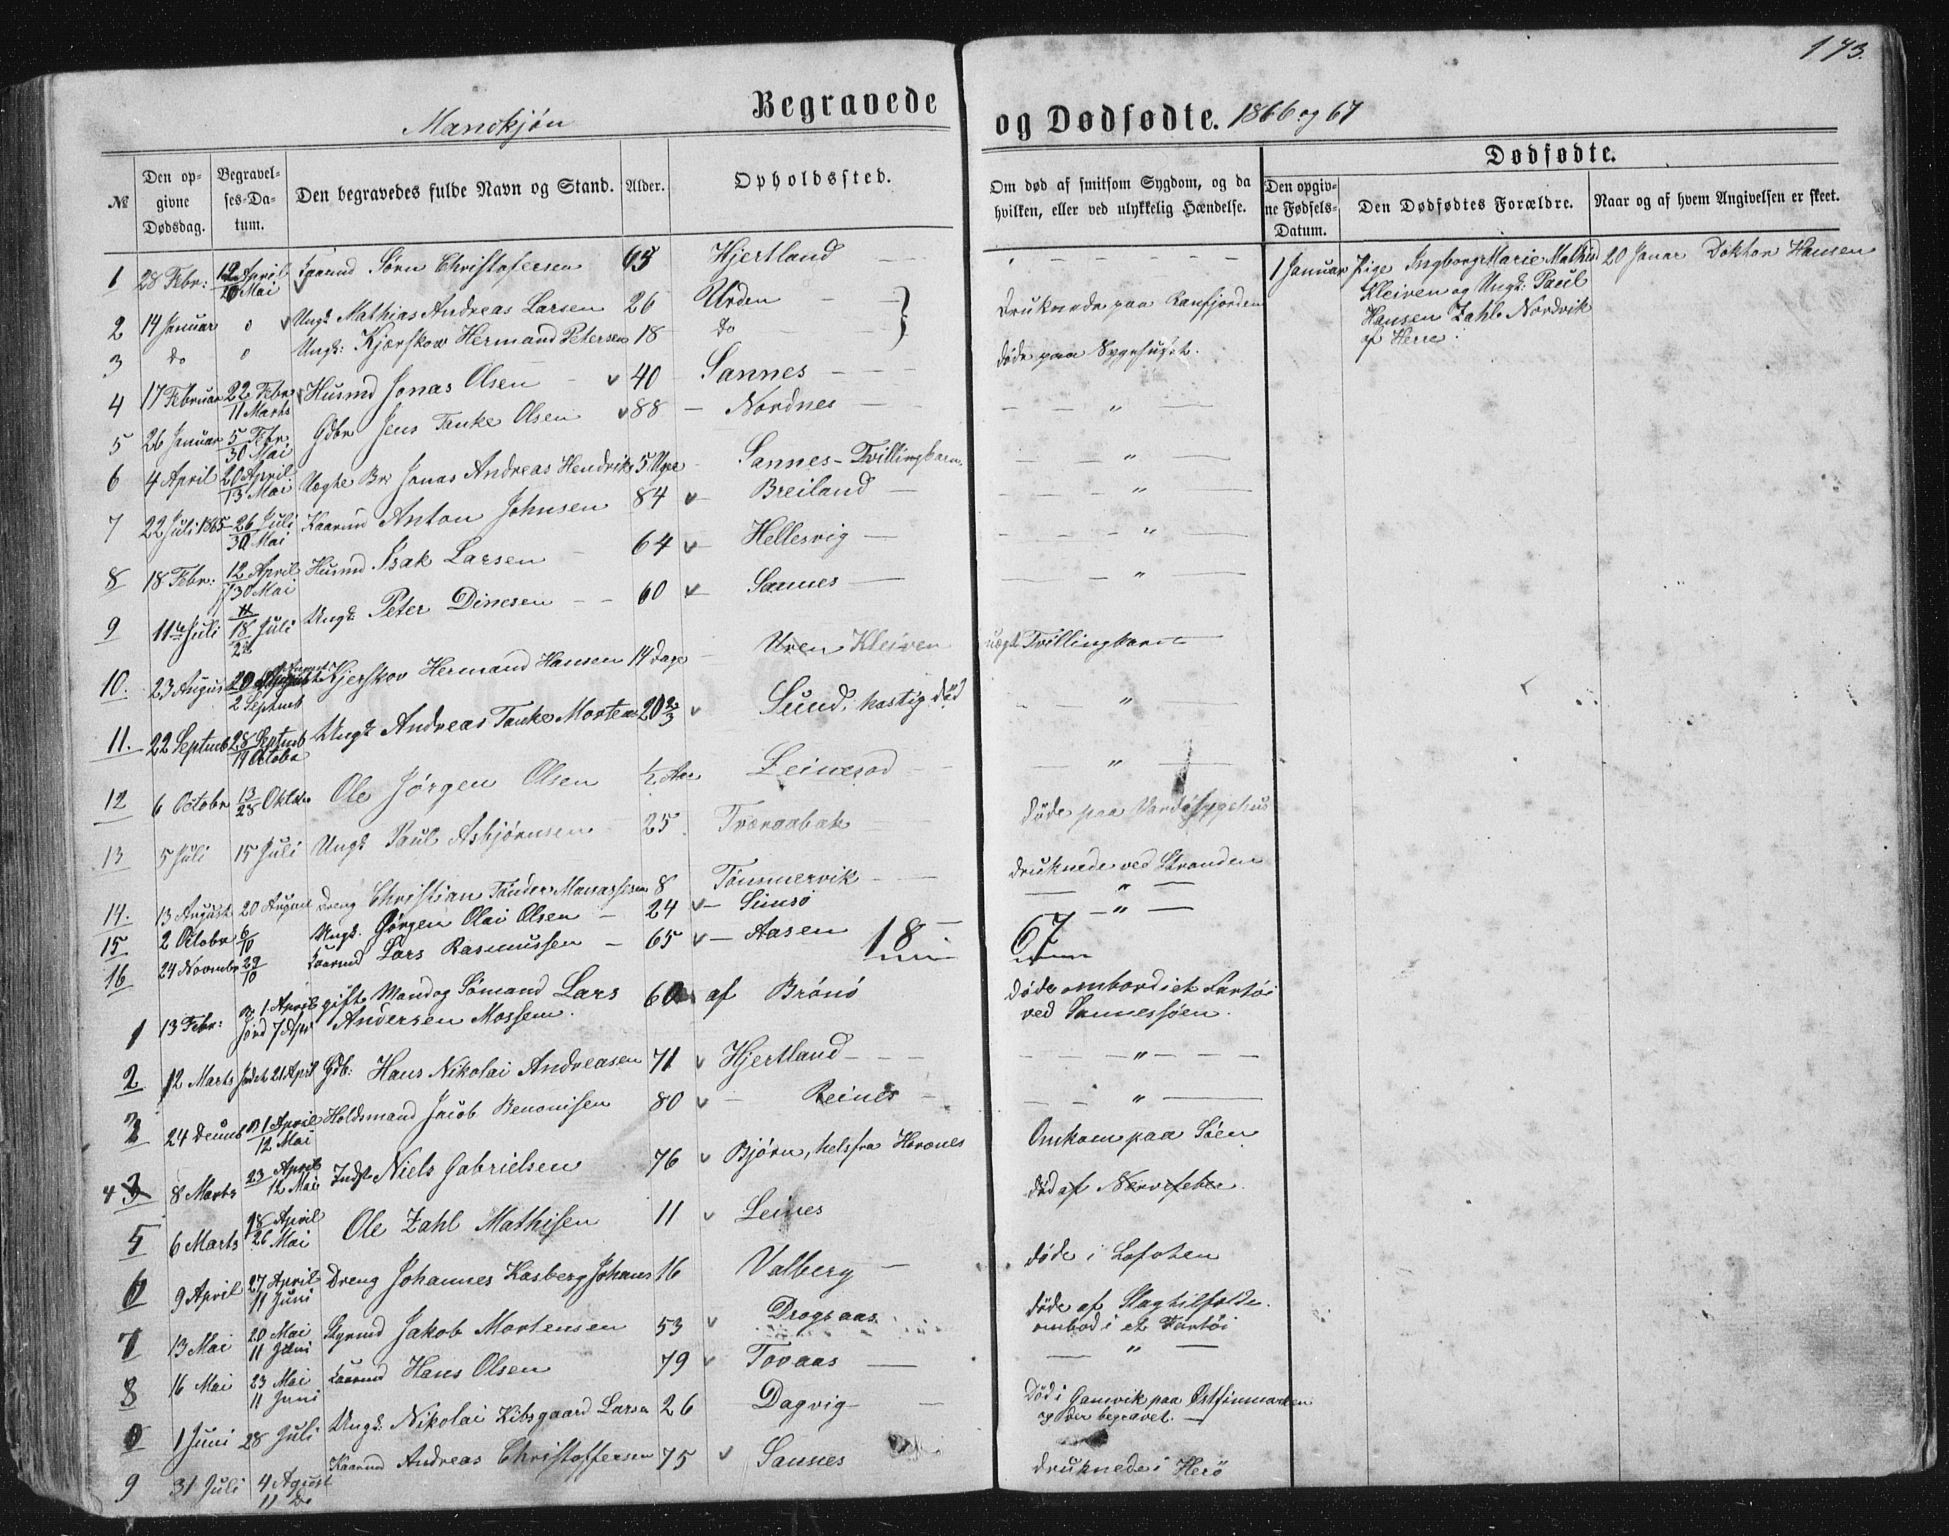 173.
Mandkjøn Begravede og Dødfødte. 1866 og 67
Dødfødte.
№ Den opgivne Dødsdag. Begravelses-Datum. Den begravedes fulde Navn og Stand. Alder. Opholdssted. Om død af smitsom Sygdom, og da hvilken, eller ved ulykkelig Hændelse. Den opgivne Fødsels-Datum. Den Dødfødtes Forældre. Naar og af hvem Angivelsen er skeet.
1 28 Febr: 12 April 10 Mai Kaarmd Sørn Christofersen 65 Hjertland
1 Januar Pige Ingborg Marie Mathisd 20 Januar Doktor Hansen
Kleiven og Ungk: Paul
Hansen Zahl Nordvik
af Herre.
2 14 Januar 0 Ungk Mathias Andreas Larsen 26 Urden druknede paa Ranfjorden
3 do 0 Ungk: Kjærskow Hermand Petersen 18 do
4 17 Februar 22 Febr 11 Marts Husmd Jonas Olsen 40 Sannes døde paa Sygehuset.
5 26 Januar 5 Febr 30 Mai Gdbr Jens Tanke Olsen 88 Nordnes "
6 4 April 20 April 13 Mai Uægte Br. Jonas Andreas Hendriks 5 Uger Sannes - Tvillingbarn "
7 22 Juli 1865 26 Juli 30 Mai Kaarmd Anton Johnsen 84 Breiland "
8 18 Febr: 12 April 30 Mai Husmd Isak Larsen 64 Hellesvig "
9 11te Juli 18 Juli Ungk Peter Dinesen 60 Sannes "
10. 23 August 2 Septemb Kjerskov Hermand Hansen 14 Dage Uren Kleiven uægt Tvillingbarn
11. 22 Septmb 28 Septmb 19 Octobr Ungk Andreas Tanke Morten 20 2/3 Sund, hastig død "
12 6 Octobr 13/28 Oktbr Ole Jørgen Olsen ½ Aar Leinesod "
13 5 Juli 15 Juli Ungk Paul Asbjørnsen 25 Tveraabak døde paa Vardø Sygehus
14. 13 August 20 August Dreng Christian Tønder Manassesen 8 Tømmervik druknede ved Stranden
15 2 Octobr 6/10 Ungk. Jørgen Olai Olsen 24 Simsø "
16 24 Novmbr 29/10 Kaarmd Lars Rasmussen 65 Aasen "
18 67
1 13 Febr: 1 April Jord 7 Apr gift Mand og Sømand Lars Andersen Mossem. 60 af Brønø døde ombord i et Fartøi ved Sannessøen.
2 12 Marts Jordet 21 April Gdb: Hans Nikolai Andreasen 71 Hjertland "
3 24 Decmb 1 April 12 Mai Holdsmand Jacob Benonisen 80 Reines "
4 8 Marts 23 April 12 Mai Inds Niels Gabrielsen 76 Bjørn, Omkom paa Søen
5 6 Marts 18 April 26 Mai Ole Zahl Mathisen 11 Leines død af Nervefeber.
6 9 April 27 April 11 Juni Dreng Johannes Kasberg Johans 16 Valberg døde i Lofoten
7 13 Mai 20 Mai 11 Juni Styrmd Jakob Mortensen 53 Drogsaas døde af Slagtilfælde ombord i et Fartøi
8 16 Mai 23 Mai 11 Juni Kaarmd Hans Olsen 79 Tovaas "
0 1 Juni 28 Juli Ungk. Nikolai Kibsgaard Larsen 26 Dagvig Død i Gamvik paa Østfinmarken og der begravet.
9 31 Juli 4 Agust 11 do Kaarmd Andreas Christoffersen 75 Sannes druknede i Herø